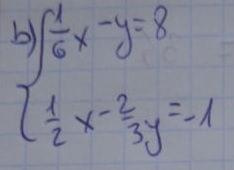 b) { 1/6 x - y = 8
1/2 x - 2/3 y = -1